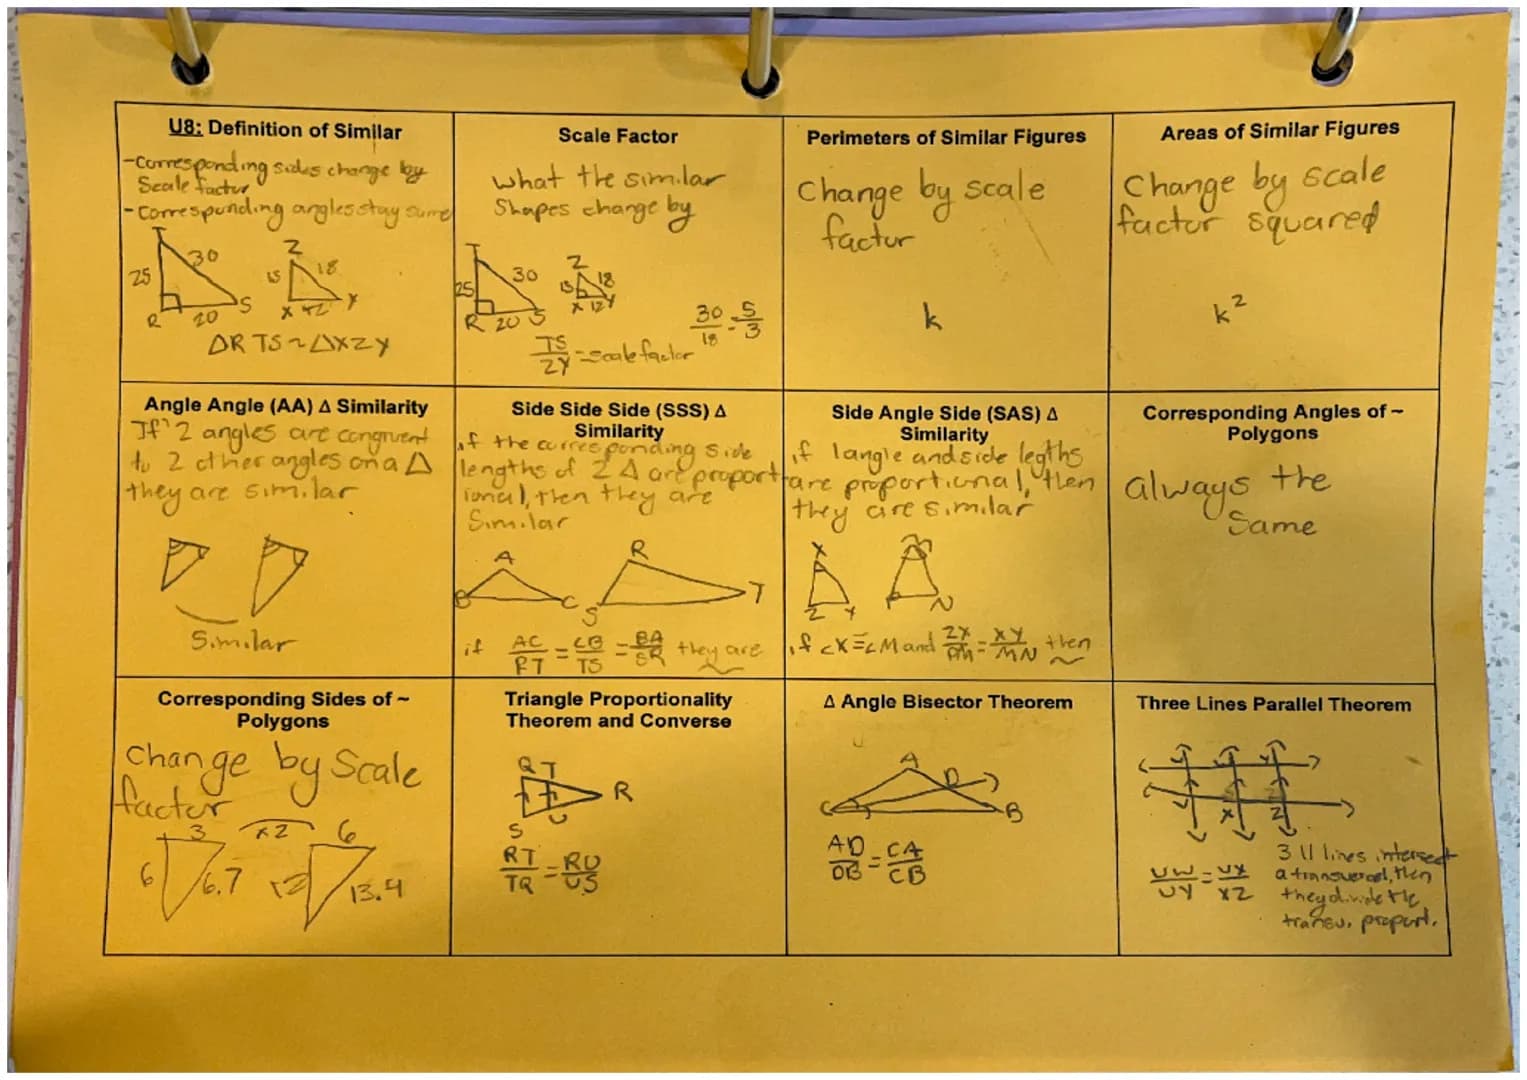 U8: Definition of Similar
-Corresponding sides change by
Scale factor
-Corresponding angles stay same
T
30
25
R
20
S
Z
15
18
X
12
Y
ΔRTS~ΔXZY
Scale Factor
What the similar
Shapes change by
T
30
25
R 20 S
Z
15
18
X 12 Y
30/18 = 5/3
TS/ZY = Scale factor
Perimeters of Similar Figures
Change by scale
factor
k
Areas of Similar Figures
Change by scale
factor squared
k²
Angle Angle (AA) Δ Similarity
If 2 angles are congruent
to 2 other angles on a Δ
they are similar
Similar
Side Side Side (SSS) Δ
Similarity
if the corresponding side
lengths of 2 Δ are proport
ional, then they are
Similar
A
B
C
R
S
T
if AC/RT = CB/TS = BA/SR they are
~
Side Angle Side (SAS) Δ
Similarity
if 1angle and side legths
are proportional, then
they are similar
X
Z
Y
M
P
N
if <X≅<M and ZX/PM = XY/MN then
~
Corresponding Angles of ~
Polygons
always the
Same
Corresponding Sides of ~
Polygons
Change by Scale
factor
3
x2
6
6
6.7
12
13.4
Triangle Proportionality
Theorem and Converse
Q T
R
S
U
RT/TQ = RU/US
Δ Angle Bisector Theorem
A
D
C
B
AD/DB = CA/CB
Three Lines Parallel Theorem
X
Z
UW/UY = VX/XZ
3 || lines intersect
a transversal, then
they divide the
transv. proport.